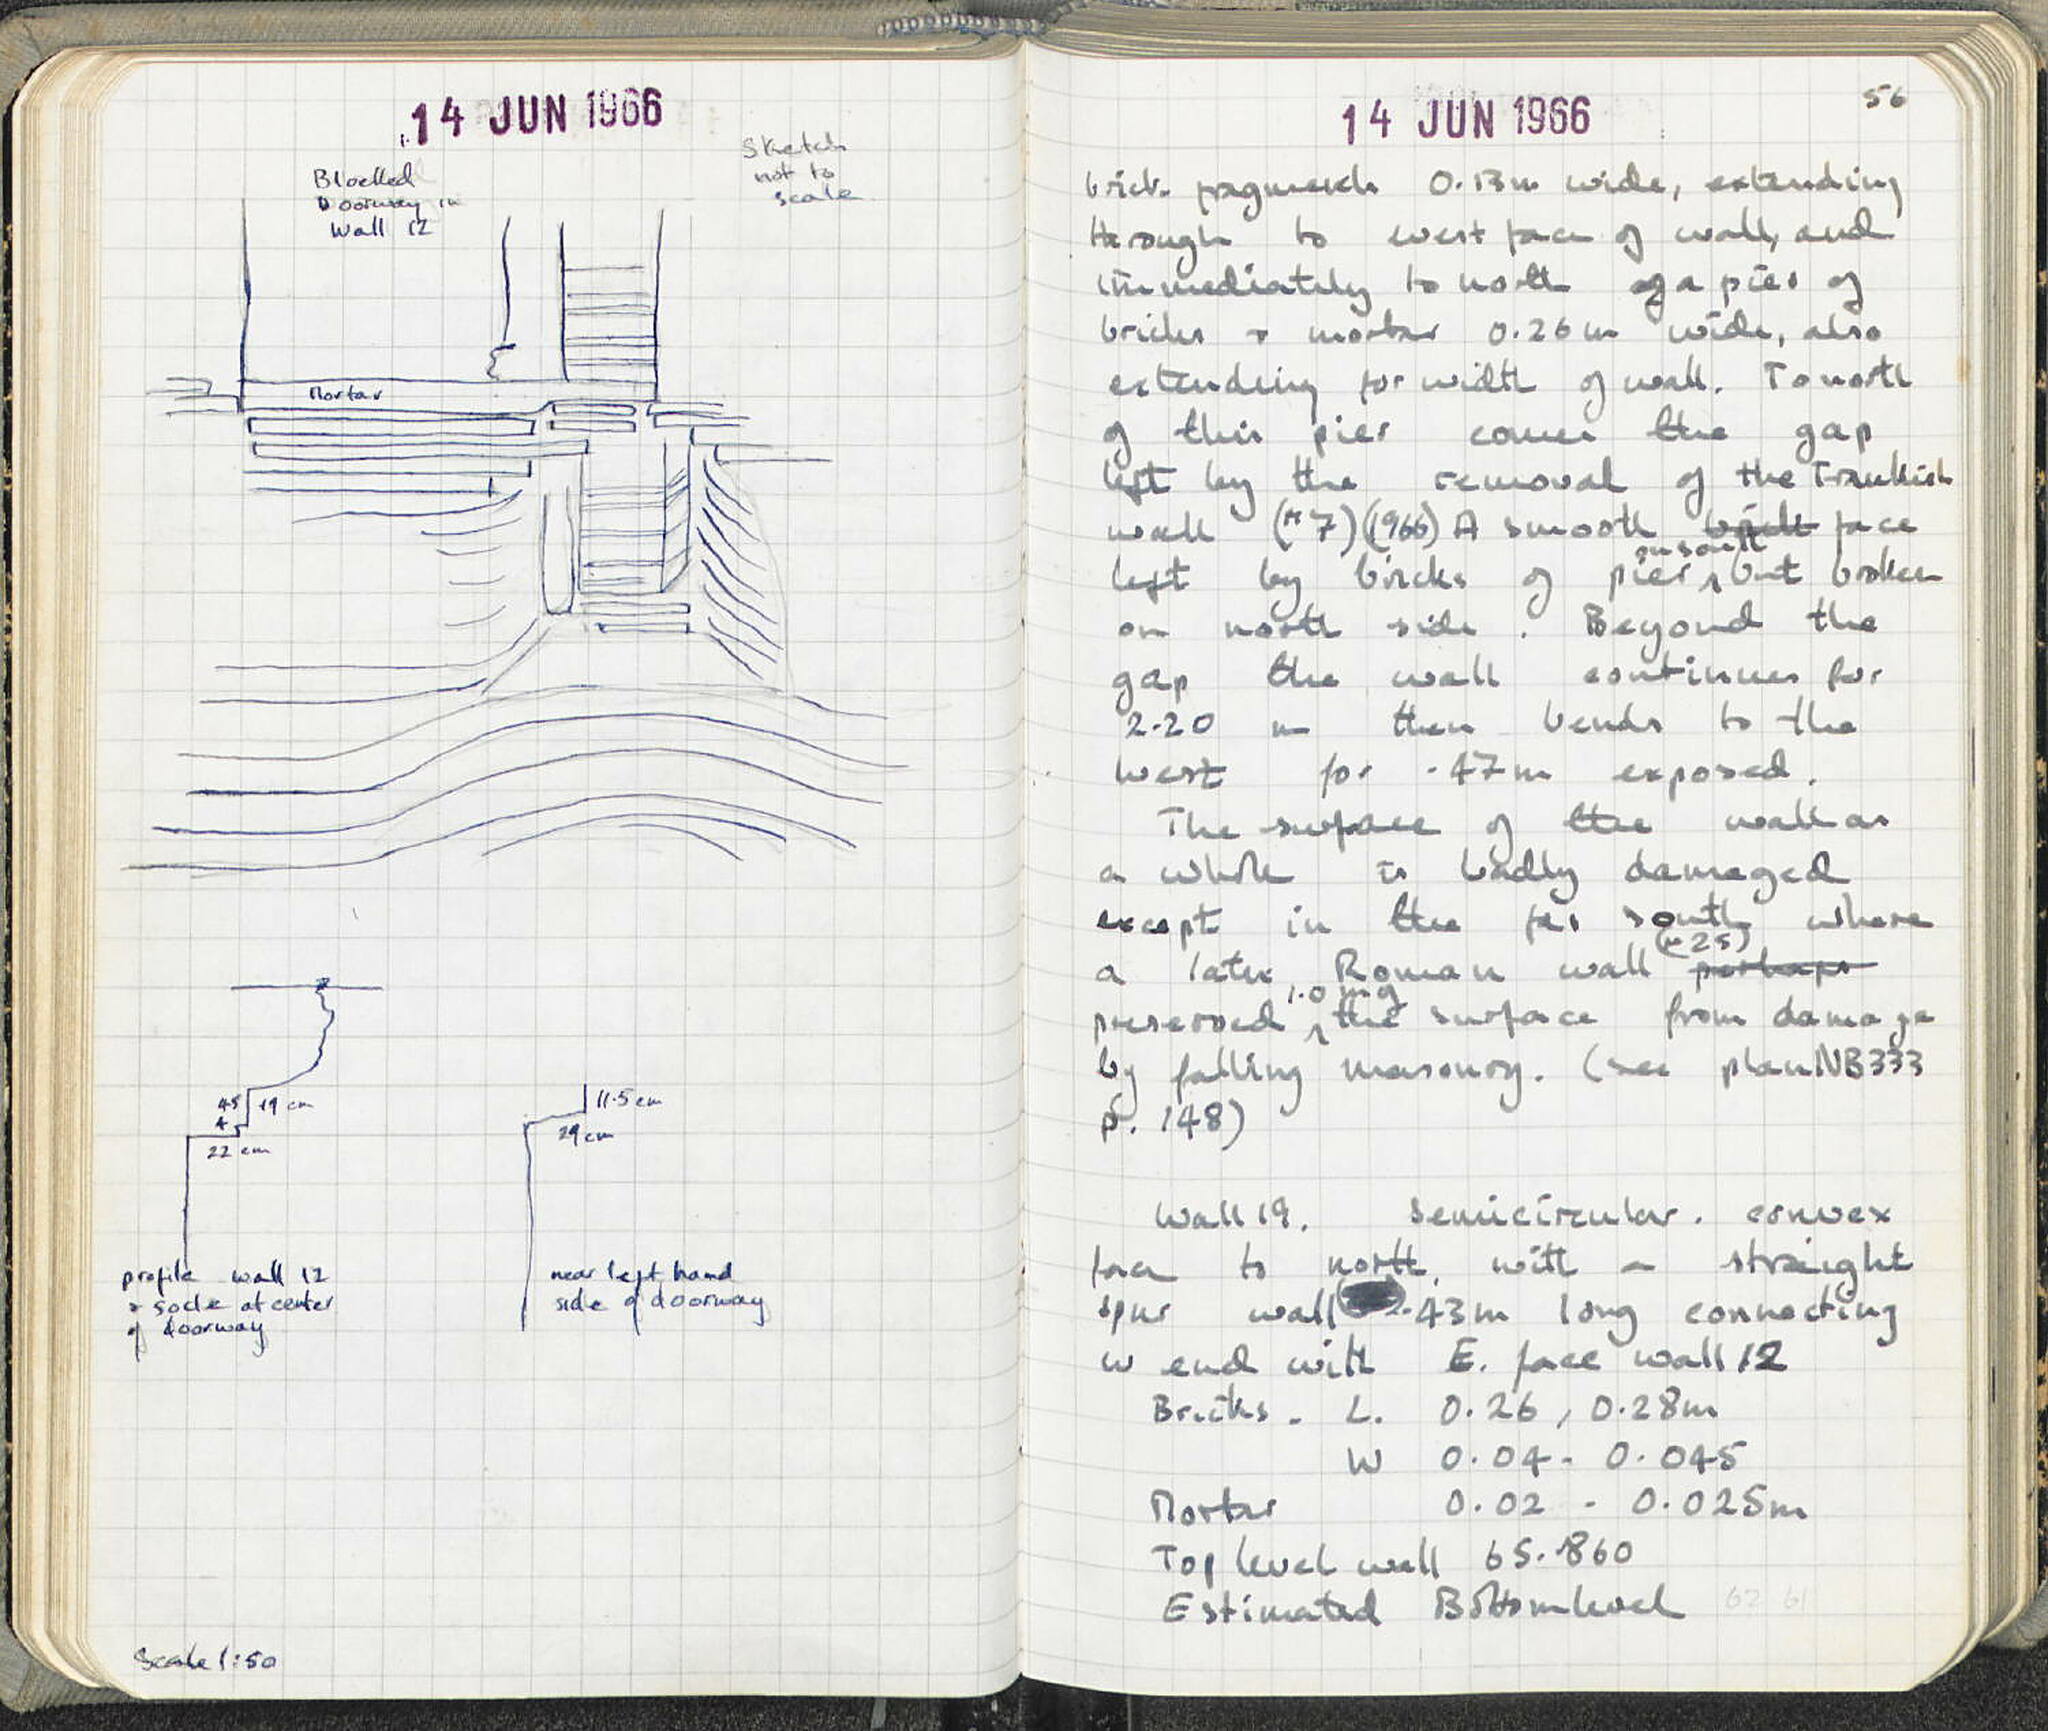 14 JUN 1966
Sketch
not to
scale
Blocked
Doorway in
Wall 12
Mortar
45 19 cm
4
22 cm
11.5 cm
29 cm
profile wall 12
& socle at center
of doorway
near left hand
side of doorway
Scale 1:50
14 JUN 1966
56
brick fragments 0.13m wide, extending
through to west face of wall, and
immediately to north of a pier of
bricks + mortar 0.26m wide, also
extending for width of wall. To north
of this pier comes the gap
left by the removal of the Frankish
wall (#7) (1966) A smooth brick face
left by bricks of pier on south, but broken
on north side. Beyond the
gap the wall continues for
2.20 m then bends to the
west for .47m exposed.
The surface of the wall as
a whole is badly damaged
except in the far south where
a later Roman wall (#25) perhaps
preserved 1.0 m of the surface from damage
by falling masonry. (see plan NB333
p. 148)
Wall 19. Semicircular. convex
face to north, with a straight
spur wall 2.43m long connecting
W end with E. face wall 12
Bricks - L. 0.26, 0.28m
W 0.04 - 0.045
Mortar 0.02 - 0.025m
Top level wall 65.860
Estimated Bottom level 62 61